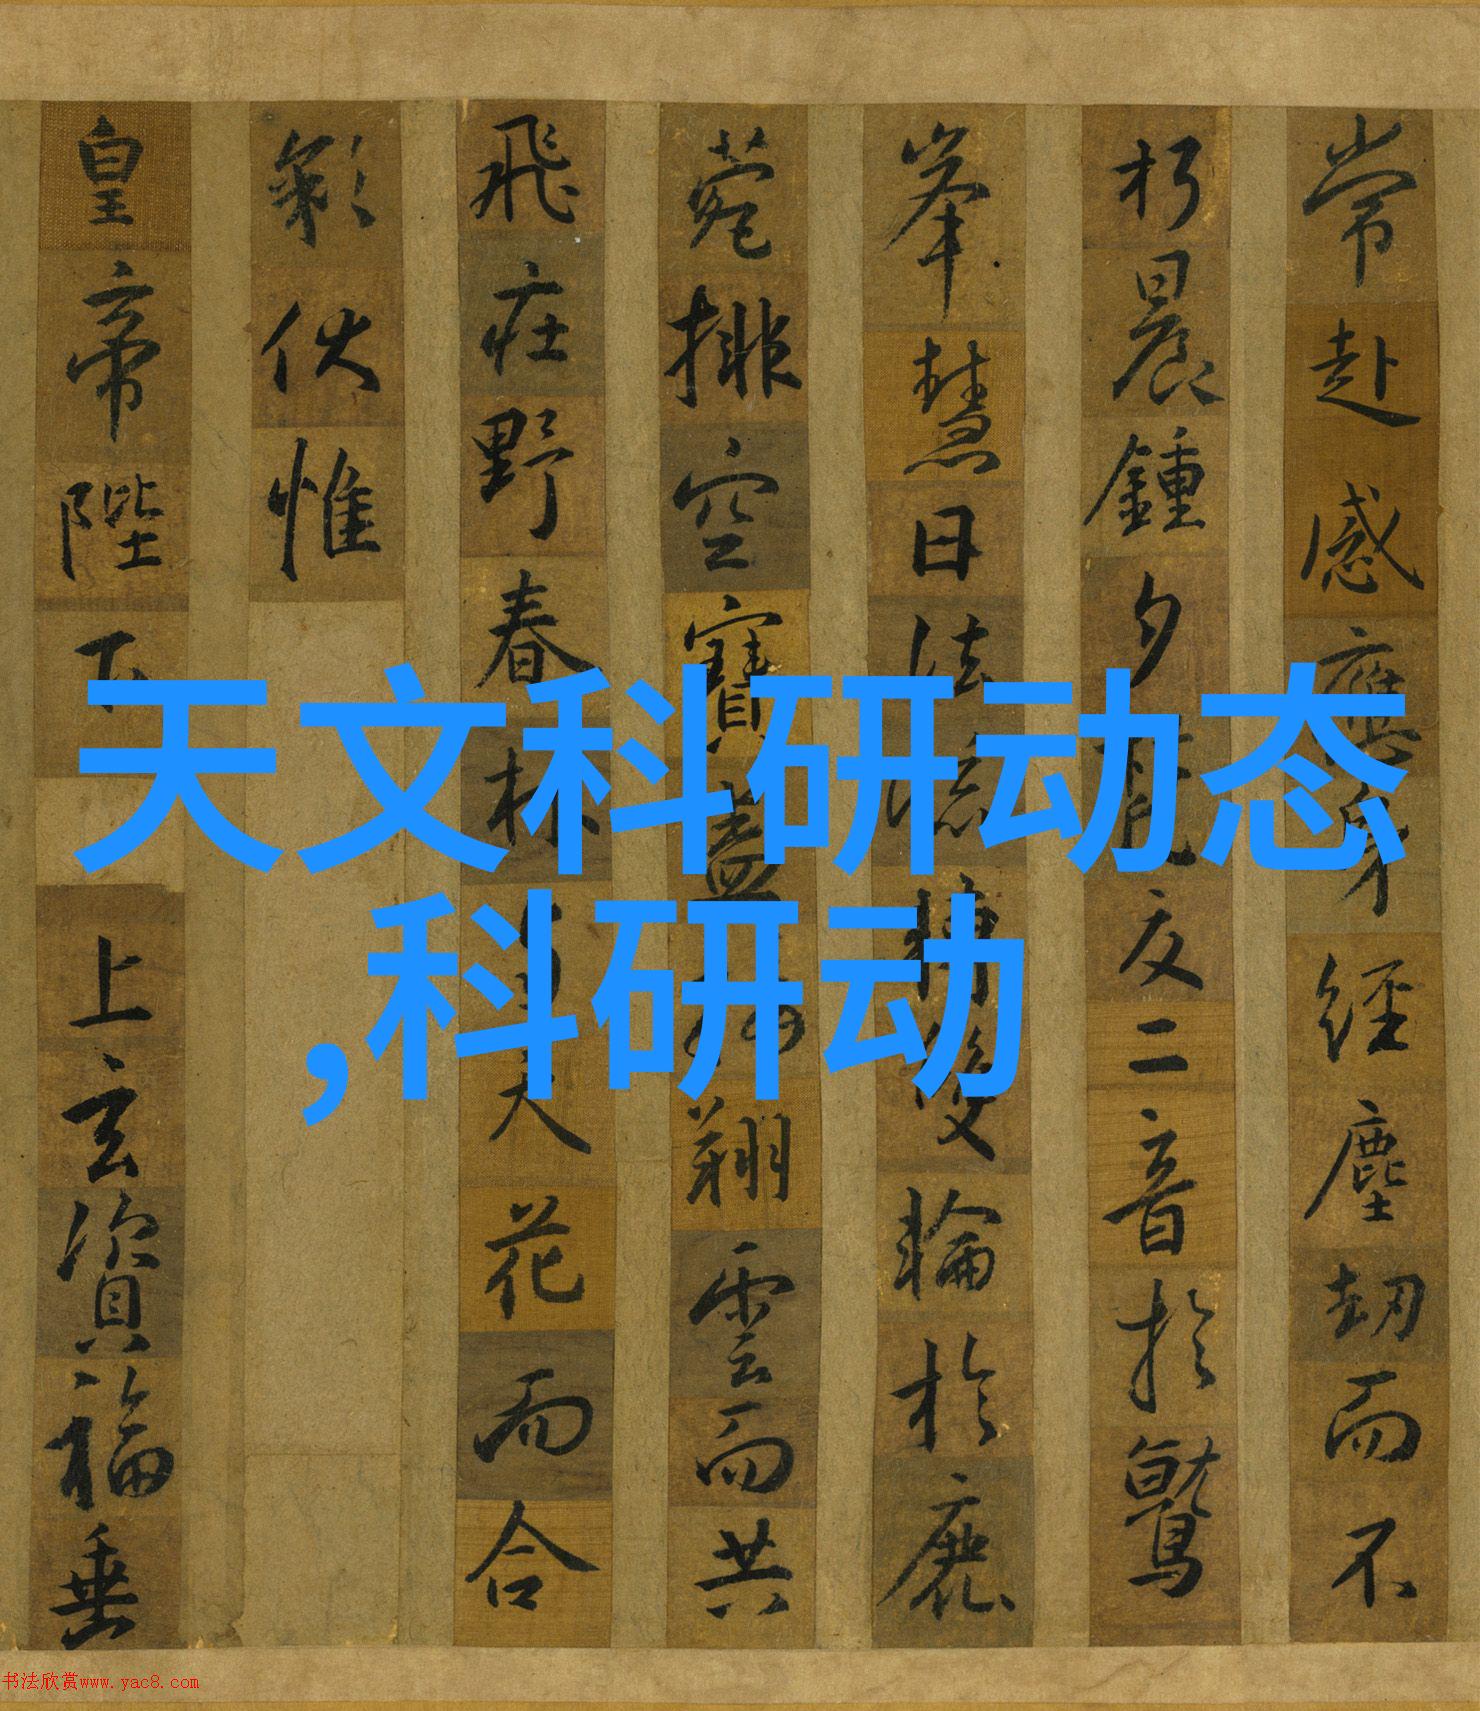 常赴感應身經塵劫而不
朽晨鍾夕交二音於鷲
峯慧日法轉雙輪於鹿
菀排空寶蓋翔雲而共
飛莊野春林天花而合
彩伏惟
皇帝陛下
上玄資福垂
天文科研动态
,科研动
书法欣赏www.yac8.com